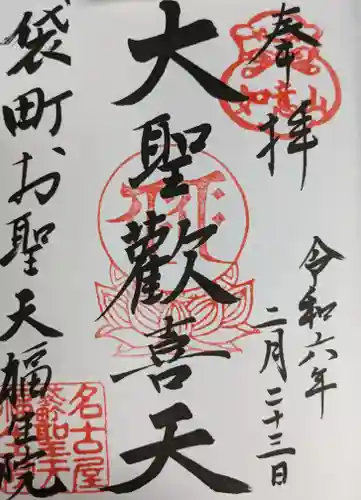 奉拝
如意山
令和六年
二月二十三日
大聖歡喜天
袋町お聖天福生院
名古屋